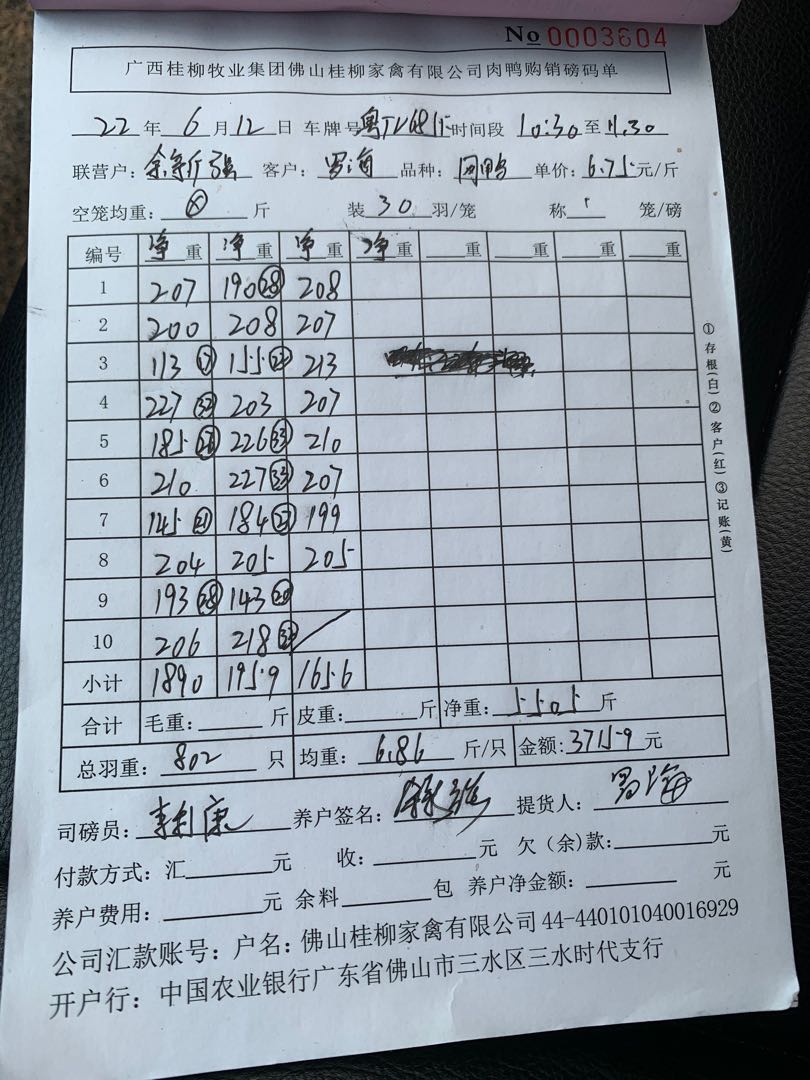 No 0003604
广西桂柳牧业集团佛山桂柳家禽有限公司肉鸭购销磅码单
22 年 6 月 12 日 车牌号 时间段 10:30 至 11.30
联营户: 客户: 罗海 品种: 单价: 6.75 元/斤
空笼均重: 斤 装 30 羽/笼 称 1 笼/磅
编号 净重 净重 净重 净重 重 重 重 重
1 207 190 28 208
2 200 208 207
3 113 155 213
4 227 203 207
5 185 226 33 210
6 210 227 33 207
7 145 21 184 27 199
8 204 205 205
9 193 28 143 20
10 206 218
小计 1890 1959 1656
合计 毛重: 斤 皮重: 斤 净重: 5505 斤
总羽重: 802 只 均重: 6.86 斤/只 金额: 37159 元
司磅员: 李利康 养户签名: 提货人: 罗海
付款方式: 汇 元 收: 元 欠(余)款: 元
养户费用: 元 余料 包 养户净金额: 元
公司汇款账号: 户名: 佛山桂柳家禽有限公司 44-440101040016929
开户行: 中国农业银行广东省佛山市三水区三水时代支行
①存根(白)②客户(红)③记账(黄)